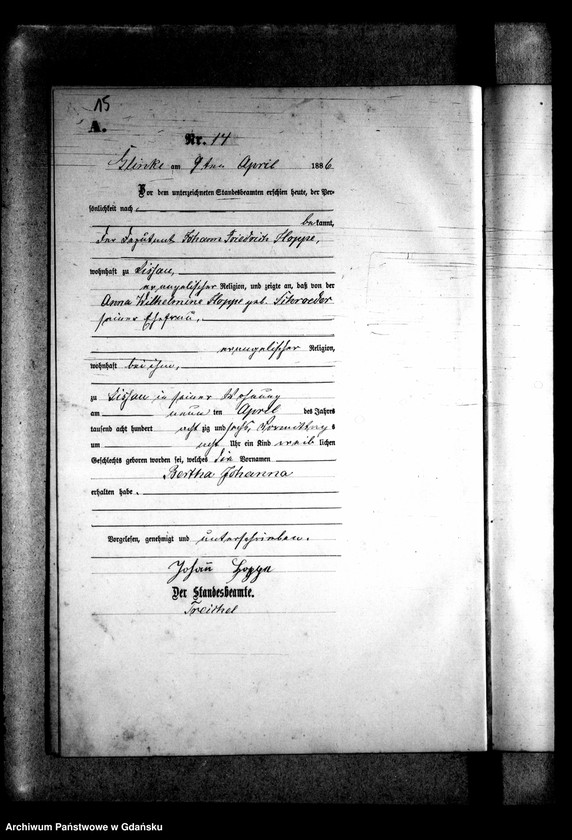 15
A.
Nr. 14
Glinke am 9ten April 1886
Vor dem unterzeichneten Standesbeamten erschien heute, der Per-
sönlichkeit nach
bekannt,
der Deputant Johann Friedrich Hoppe,
wohnhaft zu Lissau,
evangelischer Religion, und zeigte an, daß von der
Anna Wilhelmine Hoppe geb. Schroeder
seiner Ehefrau,
evangelischer Religion,
wohnhaft bei ihm,
zu Lissau in seiner Wohnung
am neun ten April des Jahres
tausend acht hundert acht zig und sechs, Vormittags
um acht Uhr ein Kind weib lichen
Geschlechts geboren worden sei, welches die Vornamen
Bertha Johanna
erhalten habe.
Vorgelesen, genehmigt und unterschrieben.
Johann Hoppe
Der Standesbeamte.
Treichel
Archiwum Państwowe w Gdańsku